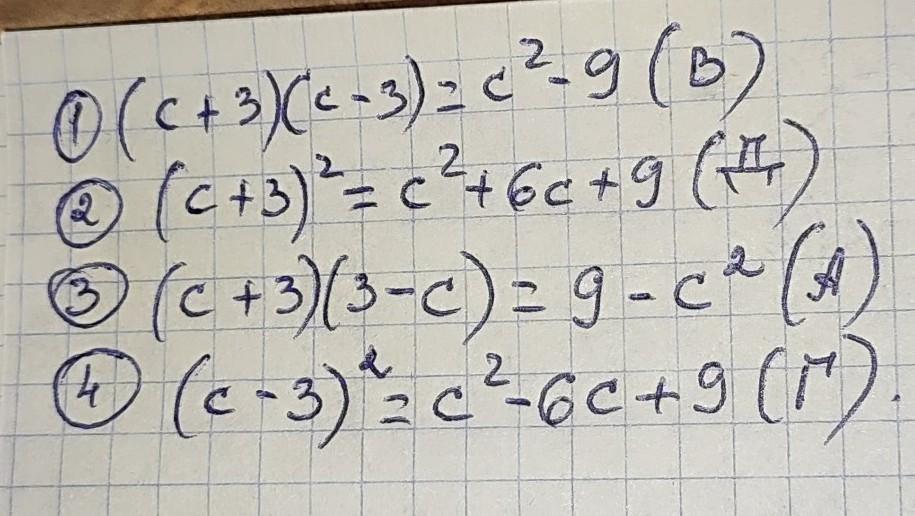 ① (c+3)(c-3)=c²-9 (В)
② (c+3)²=c²+6c+9 (Д)
③ (c+3)(3-c)=9-c² (А)
④ (c-3)²=c²-6c+9 (Г).